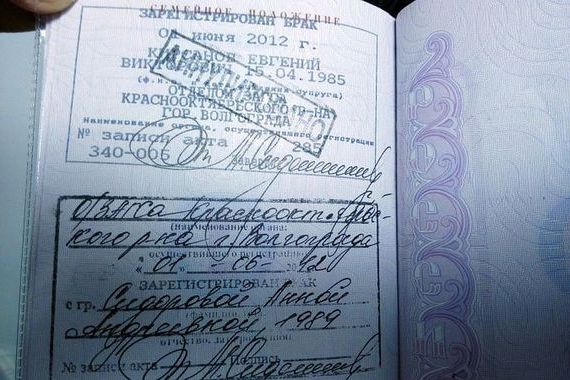 СЕМЕЙНОЕ ПОЛОЖЕНИЕ
ЗАРЕГИСТРИРОВАН БРАК
ИЮНЯ 2012 г.
ЕВГЕНИЙ
15.04.1985
КРАСНООКТЯБРЬСКОГО Р-НА
ГОР. ВОЛГОГРАДА
Наименование органа, осуществившего регистрацию
№ записи акта 285
340-006
Краснооктябрьс-
кого р-на г. Волгограда
(наименование органа,
осуществившего регистрацию)
"01" 06
ЗАРЕГИСТРИРОВАН БРАК
с гр. Сидоровой Анной
Андреевной, 1989
отчество, дата рождения)
№ записи акта Подпись